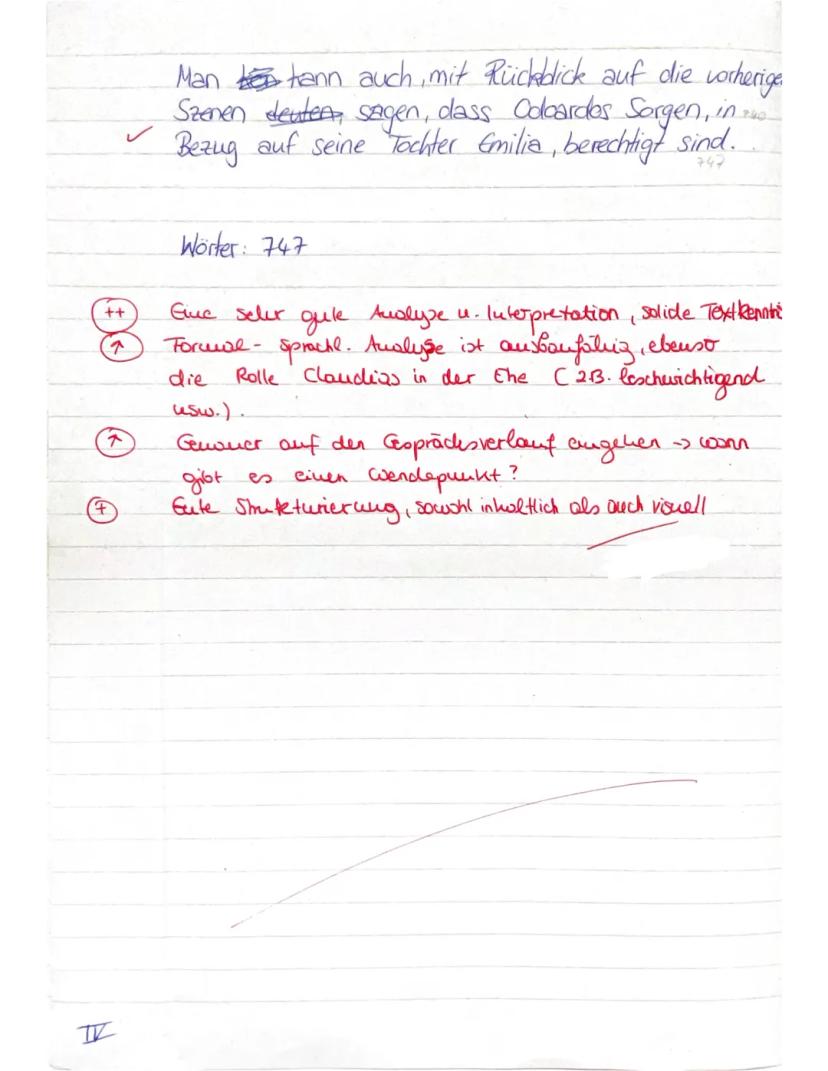 Man kann auch, mit Rückblick auf die vorherige
Szenen deuten, sagen, dass Odoardos Sorgen, in 740
Bezug auf seine Tochter Emilia, berechtigt sind.
747
Wörter: 747
++ Eine sehr gute Analyse u. Interpretation, solide Textkenntni
↑ Formal- sprachl. Analyse ist ausbaufähig, ebenso
die Rolle Claudias in der Ehe (z.B. beschwichtigend
usw.).
↑ Genauer auf den Gesprächsverlauf eingehen → wann
gibt es einen Wendepunkt?
+ Gute Strukturierung, sowohl inhaltlich als auch visuell
IV